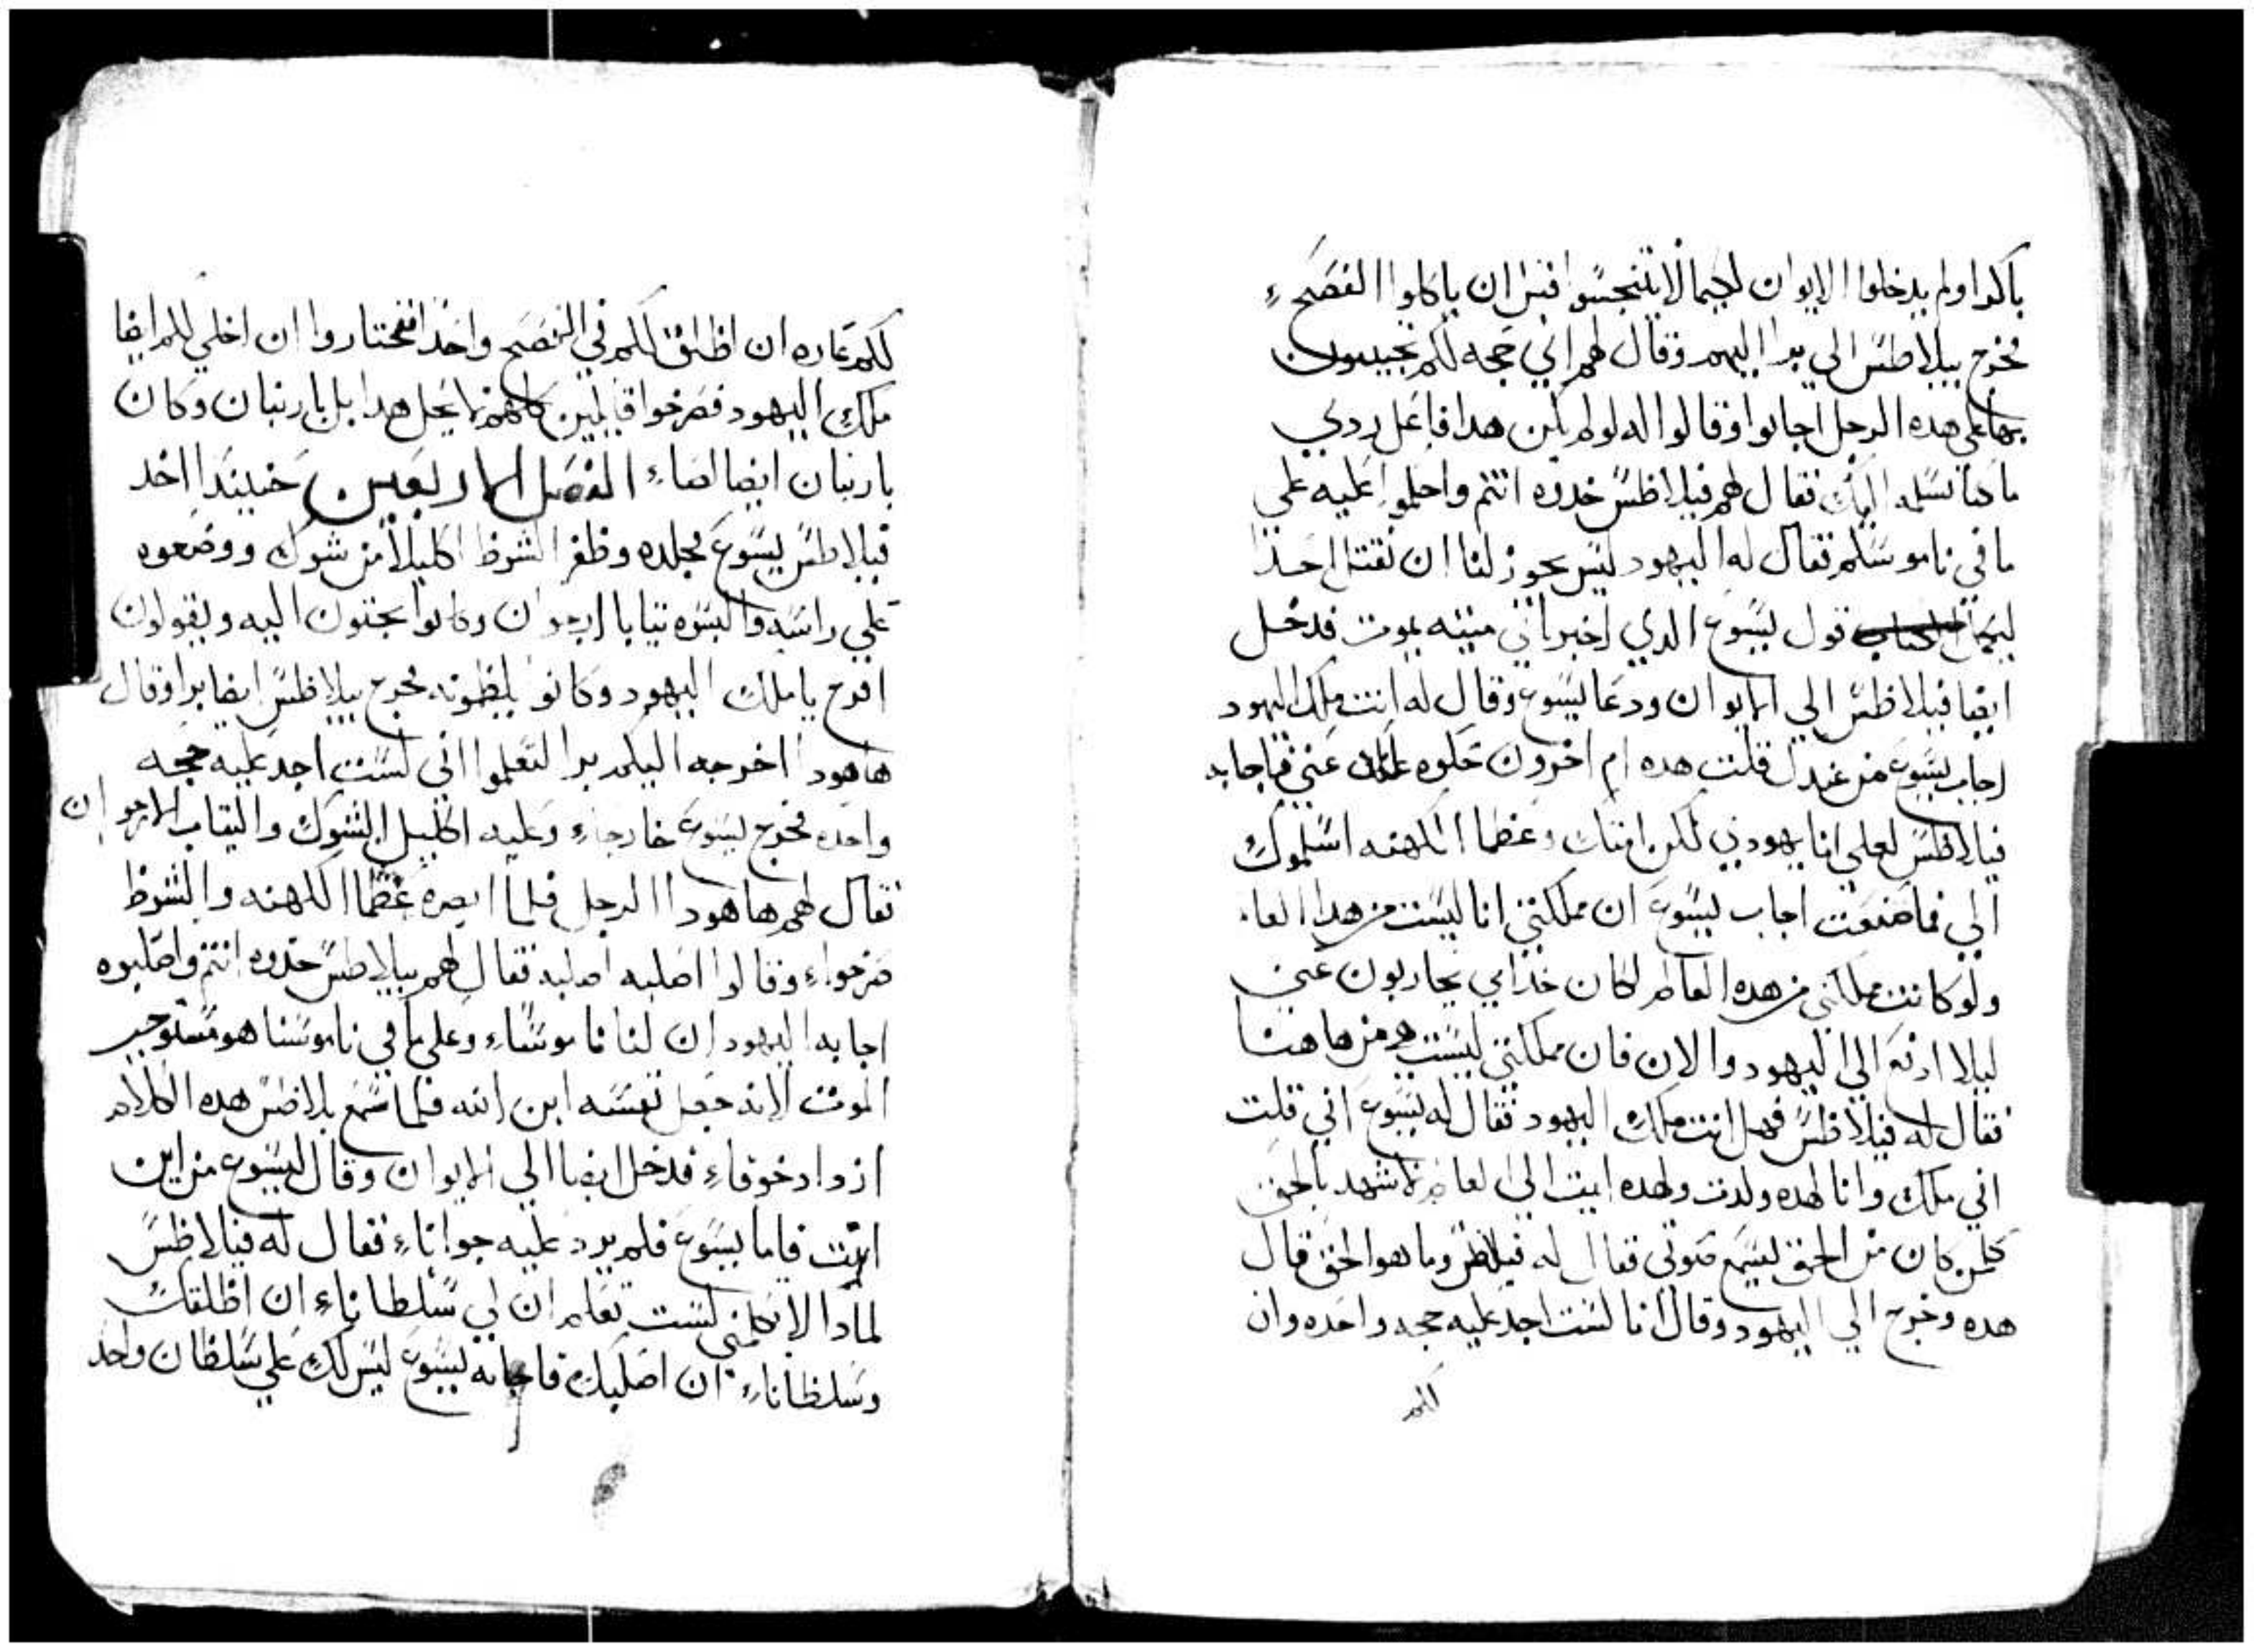 باكرا ولم يدخلوا الايوان لكيما لا يتنجسوا قبل ان ياكلوا الفصح
فخرج بيلاطس الي برا اليهم وقال لهم اي حجه لكم تجيبون
بها علي هده الرجل اجابوا وقالوا له لو لم يكن هدا فاعل ردي
ما كنا نسلمه اليك فقال لهم فيلاطس خدوه انتم واحكموا عليه علي
ما في ناموسكم فقال له اليهود ليس يجوز لنا ان نقتل احدا
ليكمل قول يسوع الدي اخبر باي ميته يموت فدخل
ايضا فيلاطس الي الايوان ودعا يسوع وقال له انت ملك اليهود
اجاب يسوع من عندك قلت هده ام اخرون حكوه لك عني فاجابه
فيلاطس لعلي انا يهودي لكن امتك وعظما الكهنه اسلموك
الي فما صنعت اجاب يسوع ان مملكتي انا ليست من هدا العا
ولو كانت مملكتي من هده العالم لكان خدامي يحاربون عني
ليلا ادفع الي اليهود والان فان مملكتي ليست هي من هاهنا
فقال له فيلاطس فهل انت ملك اليهود فقال له يسوع اني قلت
اني ملك وانا لهده ولدت ولهده اتيت الي العالم لاشهد بالحق
كلمن كان من الحق يسمع صوتي فقال له فيلاطس وما هو الحق قال
هده وخرج الي اليهود وقال انا لست اجد عليه حجه واحده وان
لكم
لكم عاده ان اطلق لكم في الفصح واحدا فتختاروا ان اخلي لكم ايضا
ملك اليهود فصرخوا قايلين كلهم لا تخل هدا بل باربنان وكان
باربنان ايضا لصاء الفصل الاربعين حينيدا اخد
فيلاطس يسوع فجلده وظفر الشرط اكليلا من شوك ووضعوه
علي راسه والبسوه تيابا ارجوان وكانوا يجتون اليه ويقولون
افرح يا ملك اليهود وكانوا يلطمونه فخرج بيلاطس ايضا برا وقال
ها هودا اخرجه اليكم برا لتعلموا اني لست اجد عليه حجه
واحده فخرج يسوع خارجاء وعليه اكليل الشوك والتياب الارجوان
فقال لهم ها هودا الرجل فلما ابصره عظما الكهنه والشرط
صرخواء وقالوا اصلبه اصلبه فقال لهم بيلاطس خدوه انتم واصلبوه
اجابه اليهود ان لنا ناموساء وعلي ما في ناموسنا هو مستوجب
الموت لانه جعل نفسه ابن الله فلما سمع بلاطس هده الكلام
ازداد خوفاء فدخل ايضا الي الايوان وقال ليسوع من اين
انت فاما يسوع فلم يرد عليه جواباء فقال له فيلاطس
لمادا لا تكلمني لست تعلم ان لي سلطاناء ان اطلقك
وسلطاناء ان اصلبك فاجابه يسوع ليس لك علي سلطان واحد